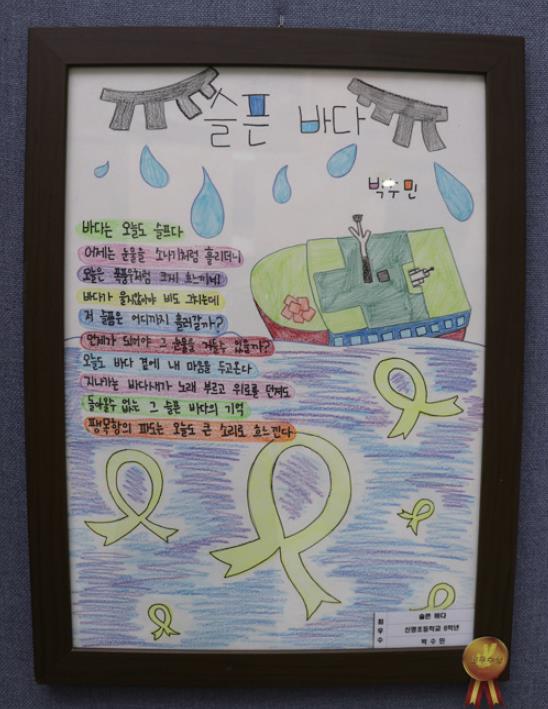 슬픈 바다
박수민
바다는 오늘도 슬프다
어제는 눈물을 소나기처럼 흘리더니
오늘은 폭풍우처럼 크게 흐느끼네!
바다가 울지않아야 비도 그치는데
저 슬픔은 어디까지 흘러갈까?
언제가 되어야 그 눈물을 거둘수 있을까?
오늘도 바다 곁에 내 마음을 두고온다
지나가는 바다새가 노래 부르고 위로를 던져도
돌아올수 없는 그 슬픈 바다의 기억
팽목항의 파도는 오늘도 큰 소리로 흐느낀다
최우수
슬픈 바다
신명초등학교 6학년
박 수 민